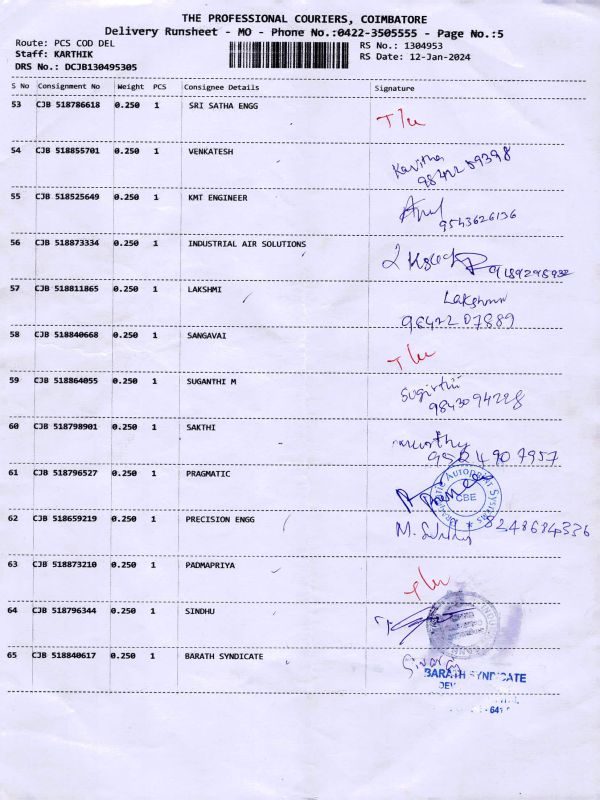 THE PROFESSIONAL COURIERS, COIMBATORE
Delivery Runsheet - MO - Phone No.:0422-3505555 - Page No.:5
Route: PCS COD DEL RS No.: 1304953
Staff: KARTHIK RS Date: 12-Jan-2024
DRS No.: DCJB130495305
S No Consignment No Weight PCS Consignee Details Signature
53 CJB 518786618 0.250 1 SRI SATHA ENGG
54 CJB 518855701 0.250 1 VENKATESH Kavitha
98422 59398
55 CJB 518525649 0.250 1 KMT ENGINEER
9543626136
56 CJB 518873334 0.250 1 INDUSTRIAL AIR SOLUTIONS
57 CJB 518811865 0.250 1 LAKSHMI Lakshmi
98422 07889
58 CJB 518840668 0.250 1 SANGAVAI
59 CJB 518864055 0.250 1 SUGANTHI M
9843094228
60 CJB 518798901 0.250 1 SAKTHI
9524907957
61 CJB 518796527 0.250 1 PRAGMATIC
CBE
62 CJB 518659219 0.250 1 PRECISION ENGG 8248684336
63 CJB 518873210 0.250 1 PADMAPRIYA
64 CJB 518796344 0.250 1 SINDHU
65 CJB 518840617 0.250 1 BARATH SYNDICATE
BARATH SYNDICATE